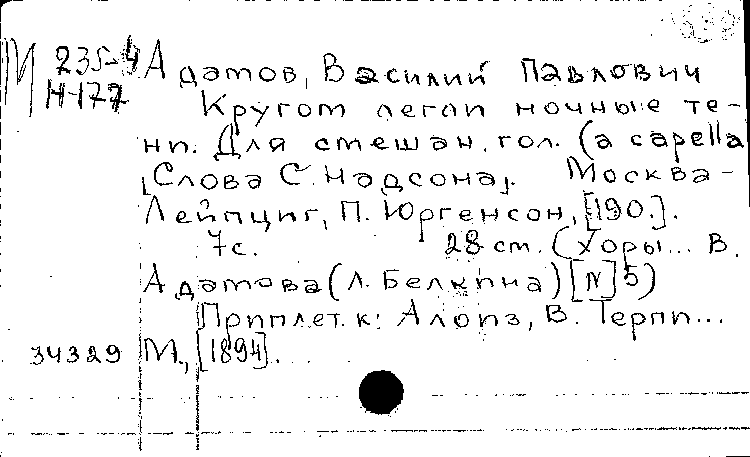 М 235-4 Адамов, Василий Павлович
Н-177 Кругом легли ночные те-
ни. Для смешан. гол. (a capella
[Слова С. Надсона]. Москва-
Лейпциг, П. Юргенсон, [190.].
7 с. 28 см. (Хоры... В.
Адамова (Л. Белкина) [N] 5)
Приплет. к: Алоиз, В. Терпи...
34329 М., [1894].